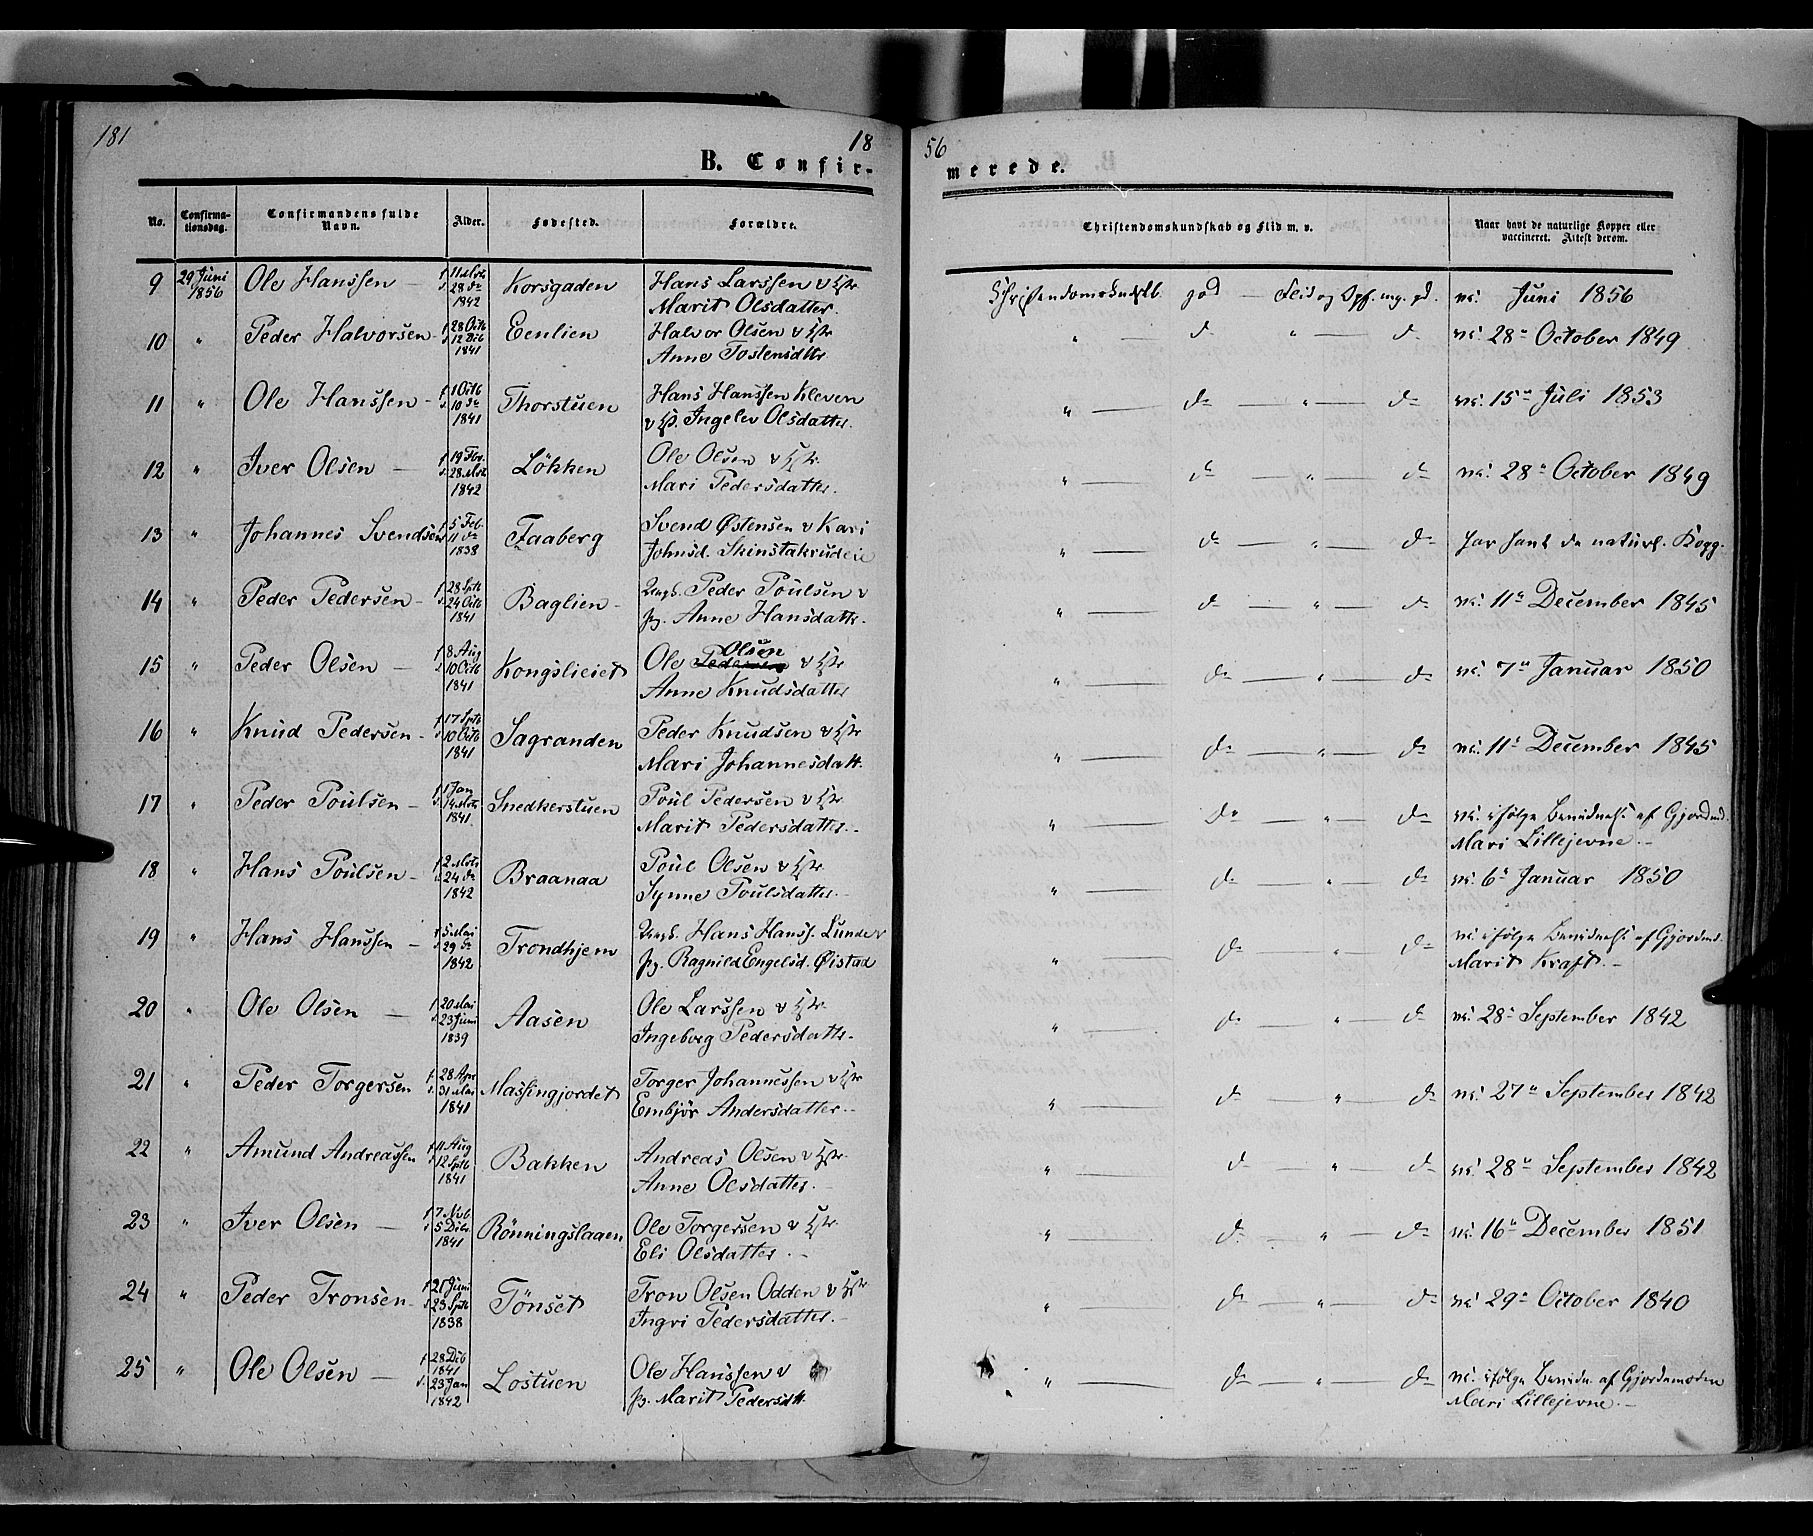 181
18
56
B. Confir-
merede.
No.
Confirma-
tionsdag.
Confirmandens fulde
Navn.
Alder.
Fødested.
Forældre.
Christendomskundskab og Flid m. v.
Naar havt de naturlige Kopper eller
vaccineret. Attest derom.
9 29 Juni 1856 Ole Hanssen — 28 1842 Korsgaden Hans Larssen v
Marit Olsdatter. god Juni 1856
10 " Peder Halvorsen 28 12 1841 Eenlien Halvor Olsen v
Anne Tostensdtter " — d " — d 28 October 1849
11 " Ole Hanssen 1 10 1841 Thorstuen Hans Hanssen Kleven
v Ingelev Olsdatter. " — d " — d 15 Juli 1853
12 " Iver Olsen — 19 28 1842 Lökken Ole Olsen v
Mari Pedersdatter. " — d " — d 28 October 1849
13 " Johannes Svendsen 5 Feb. 11 1838 Faaberg Svend Østensen v Kari
Johnsd. Skinstakrudeie " — d " — d
14 " Peder Pedersen 28 24 1841 Baglien Peder Poulsen v
Anne Hansdatter. " — d " — d 11 December 1845
15 " Peder Olsen — 8 Aug 10 1841 Kongslieiet Ole Olsen v
Anne Knudsdatter " — d " — d 7 Januar 1850
16 " Knud Pedersen 17 10 1841 Sagranden Peder Knudsen v
Mari Johannesdatt. " — d " — d 11 December 1845
17 " Peder Poulsen 1 Jan 14 1841 Snedkerstuen Poul Pedersen v
Marit Pedersdatter. " — d " — d ifølge af
Mari Lillejevne.
18 " Hans Poulsen 2 24 1842 Braanaa Poul Olsen v
Synne Poulsdatter " — d " — d 6 Januar 1850
19 " Hans Hanssen — 5 Mai 29 1842 Trondhjem Hans Hanss. Lunde v
Ragnild Engelsd. Øistad " — d " — d ifølge af
Marit Kraft.
20 " Ole Olsen — 20 Mai 23 Juni 1839 Aasen Ole Larssen v
Ingeborg Pedersdatter. " — d " — d 28 September 1842
21 " Peder Torgersen 28 Apr 31 Mai 1841 Massingjordet Torger Johannessen v
Embjör Andersdatter. " — d " — d 27 September 1842
22 " Amund Andreassen 11 Aug 12 1841 Bakken Andreas Olsen v
Anne Olsdatter. " — d " — d 28 September 1842
23 " Iver Olsen — 7 5 1841 Rönningslagen Ole Torgersen v
Eli Olsdatter. " — d " — d 16 December 1851
24 " Peder Tronsen Juni 23 1838 Tönset Tron Olsen Odden v
Ingri Pedersdatter. " — d " — d 29 October 1840
25 " Ole Olsen — 28 1841 23 Jan 1842 Lostuen Ole Hanssen v
Marit Pedersdtt. " — d " — d ifølge af
Mari Lillejevne.